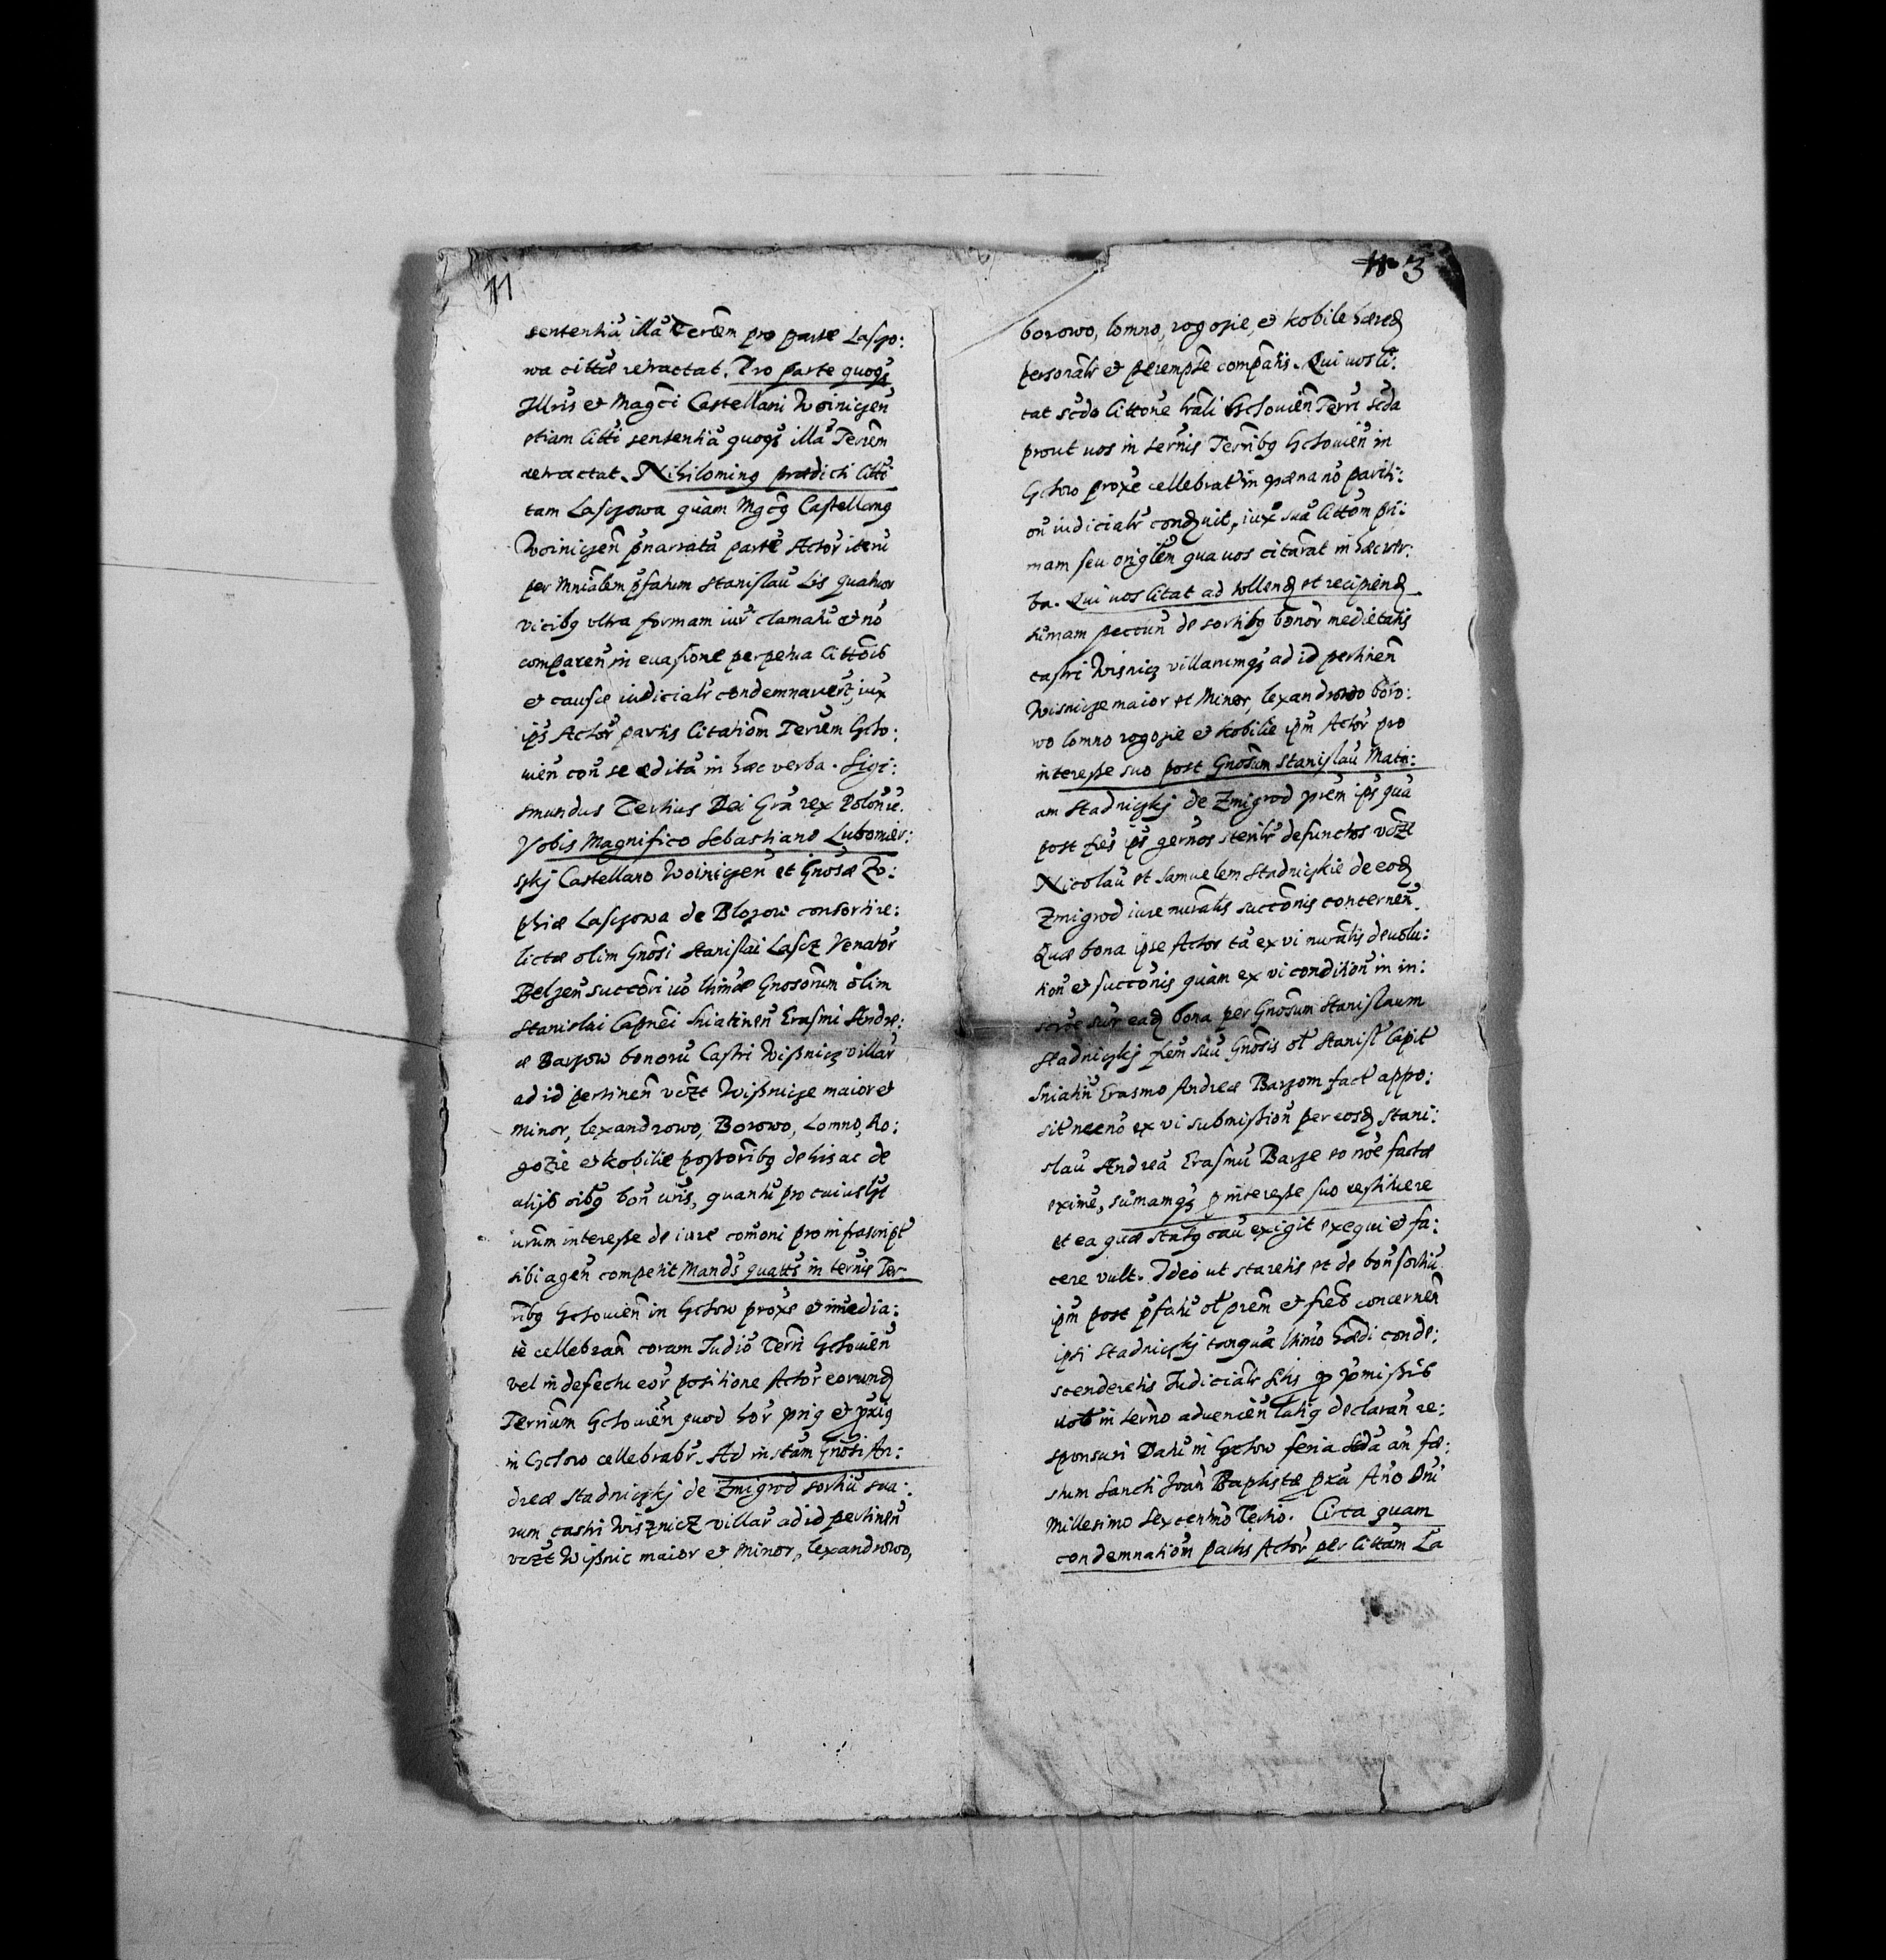 11
sententiā illā Terrēm pro parte Lasczo:
wa cittæ retractat. Pro parte quoqꝫ
Illris et Magci Castellani Woinicen
etiam citti sententiā quoqꝫ illā Terrēm
retractat. Nihilominꝰ prædicti citti
tam Lasczowa quàm Mgcꝰ Castellanꝰ
Woinicen pnarratā partē Actor iterū
per Mnialem pfatum Stanislaū Lis quatuor
vicibꝰ ultra formam iur clamati et nō
comparen in evasione perpetua cittōis
et causæ iudicialr condemnaverꝭ, iux
ips Actor partis citationem Terrem Gcho:
uien con se æditā in hæc verba. Sigi:
smundus Tertius Dei Gra rex Poloniæ.
Vobis Magnifico Sebastiano Lubomir:
skj Castellano Woinicen et Gnosæ Zo:
phiæ Lasczowa de Blozow consorti re:
lictæ olim Gnosi Stanislai Lascz Venator
Belzen succōri uō ltimæ Gnosorum olim
Stanislai Capnei Sniatinen Erasmi Andre:
æ Barzow bonorū Castri Wißnicz villar
ad id pertinen vczt Wißnicze maior et
Minor, lexandrowo, Borowo, Lomno, Ro:
gozie et kobilie poßoribꝰ de his ac de
alijs oibꝰ bon uris, quantū pro cuiuslbt
urum interesse de iure comoni pro infrascript
sibi agen competit Mands quatts in ternis Ter:
ribꝰ Gchouien in Gchow proxe et imedia:
tè cellebran coram Iudio Terri Gchouien
vel in defectu eor positione Actor eorund
Terrium Gchouien quod hor prig et pxig
in Gchow cellebrabr. Ad instam Gnosi An:
dreæ Stadniczkj de Zmigrod sortiū sua:
rum castri Wisznicz villar ad id pertinen
vczt Wißnic maior et Minor, lexandrowo,
3
borowo, lomno, rogozie, et kobile hæred
personalr et perempte compatis. Qui uos ci:
tat scdo cittone hrali Gchouien Terri scda
prout uos in ternis Terribꝰ Gchouien in
Gchow proxe cellebrat in pæna nō pariti:
on iudicialr conduit, iux suā cittom pri:
mam seu origlem qua uos citarat in hæc ver:
ba. Qui uos citat ad tollend et recipiend
sūmam peccun de sortibꝰ bonor medietatis
castri Wisnicz villarumqꝫ ad id pertinen
Wisnicze maior et Minor, lexandrowo boro:
wo lomno rogozie et kobilie ipm Actor pro
interesse suo post Gnosum Stanislaū Mati:
am Stadniczkj de Zmigrod prem ips quā
post fes ips germos sterilr defunctos vczt
Nicolaū et Samuelem Stadniczkie de eod
Zmigrod iure nuralis succōnis concernen.
Quæ bona ipse Actor tā ex vi nuralis deuolu:
tion et succōnis quàm ex vi condition in in:
scroe sur ead bona per Gnosum Stanislaum
Stadniczkj frem suū Gnosis ol Stanisl Capit
Sniatin Erasmo Andreæ Barzom fact appo:
sit necnō ex vi submißion per eosd Stani:
slaū Andreā Erasmū Barze eo noē factæ
exime, sūmamqꝫ p interesse suo restituere
et ea quæ statꝰ cau exigit exequi et fa:
cere vult. Ideo ut staretis et de bon sortiū
ipm post pfatū ol prem et fres concernen
ipsi Stadniczkj tanquā ltimo hædi conde:
scenderetis Iudicialr sitis p pmißis
uob in terno aduenien latiꝰ declaran re:
sponsuri Datū in Gchow feria scda an fæ:
stum Sancti Ioan Baptistæ pxa Ano Dni
Millesimo Sexcentmo Tertio. Circa quam
condemnation partis Actor per cittam La